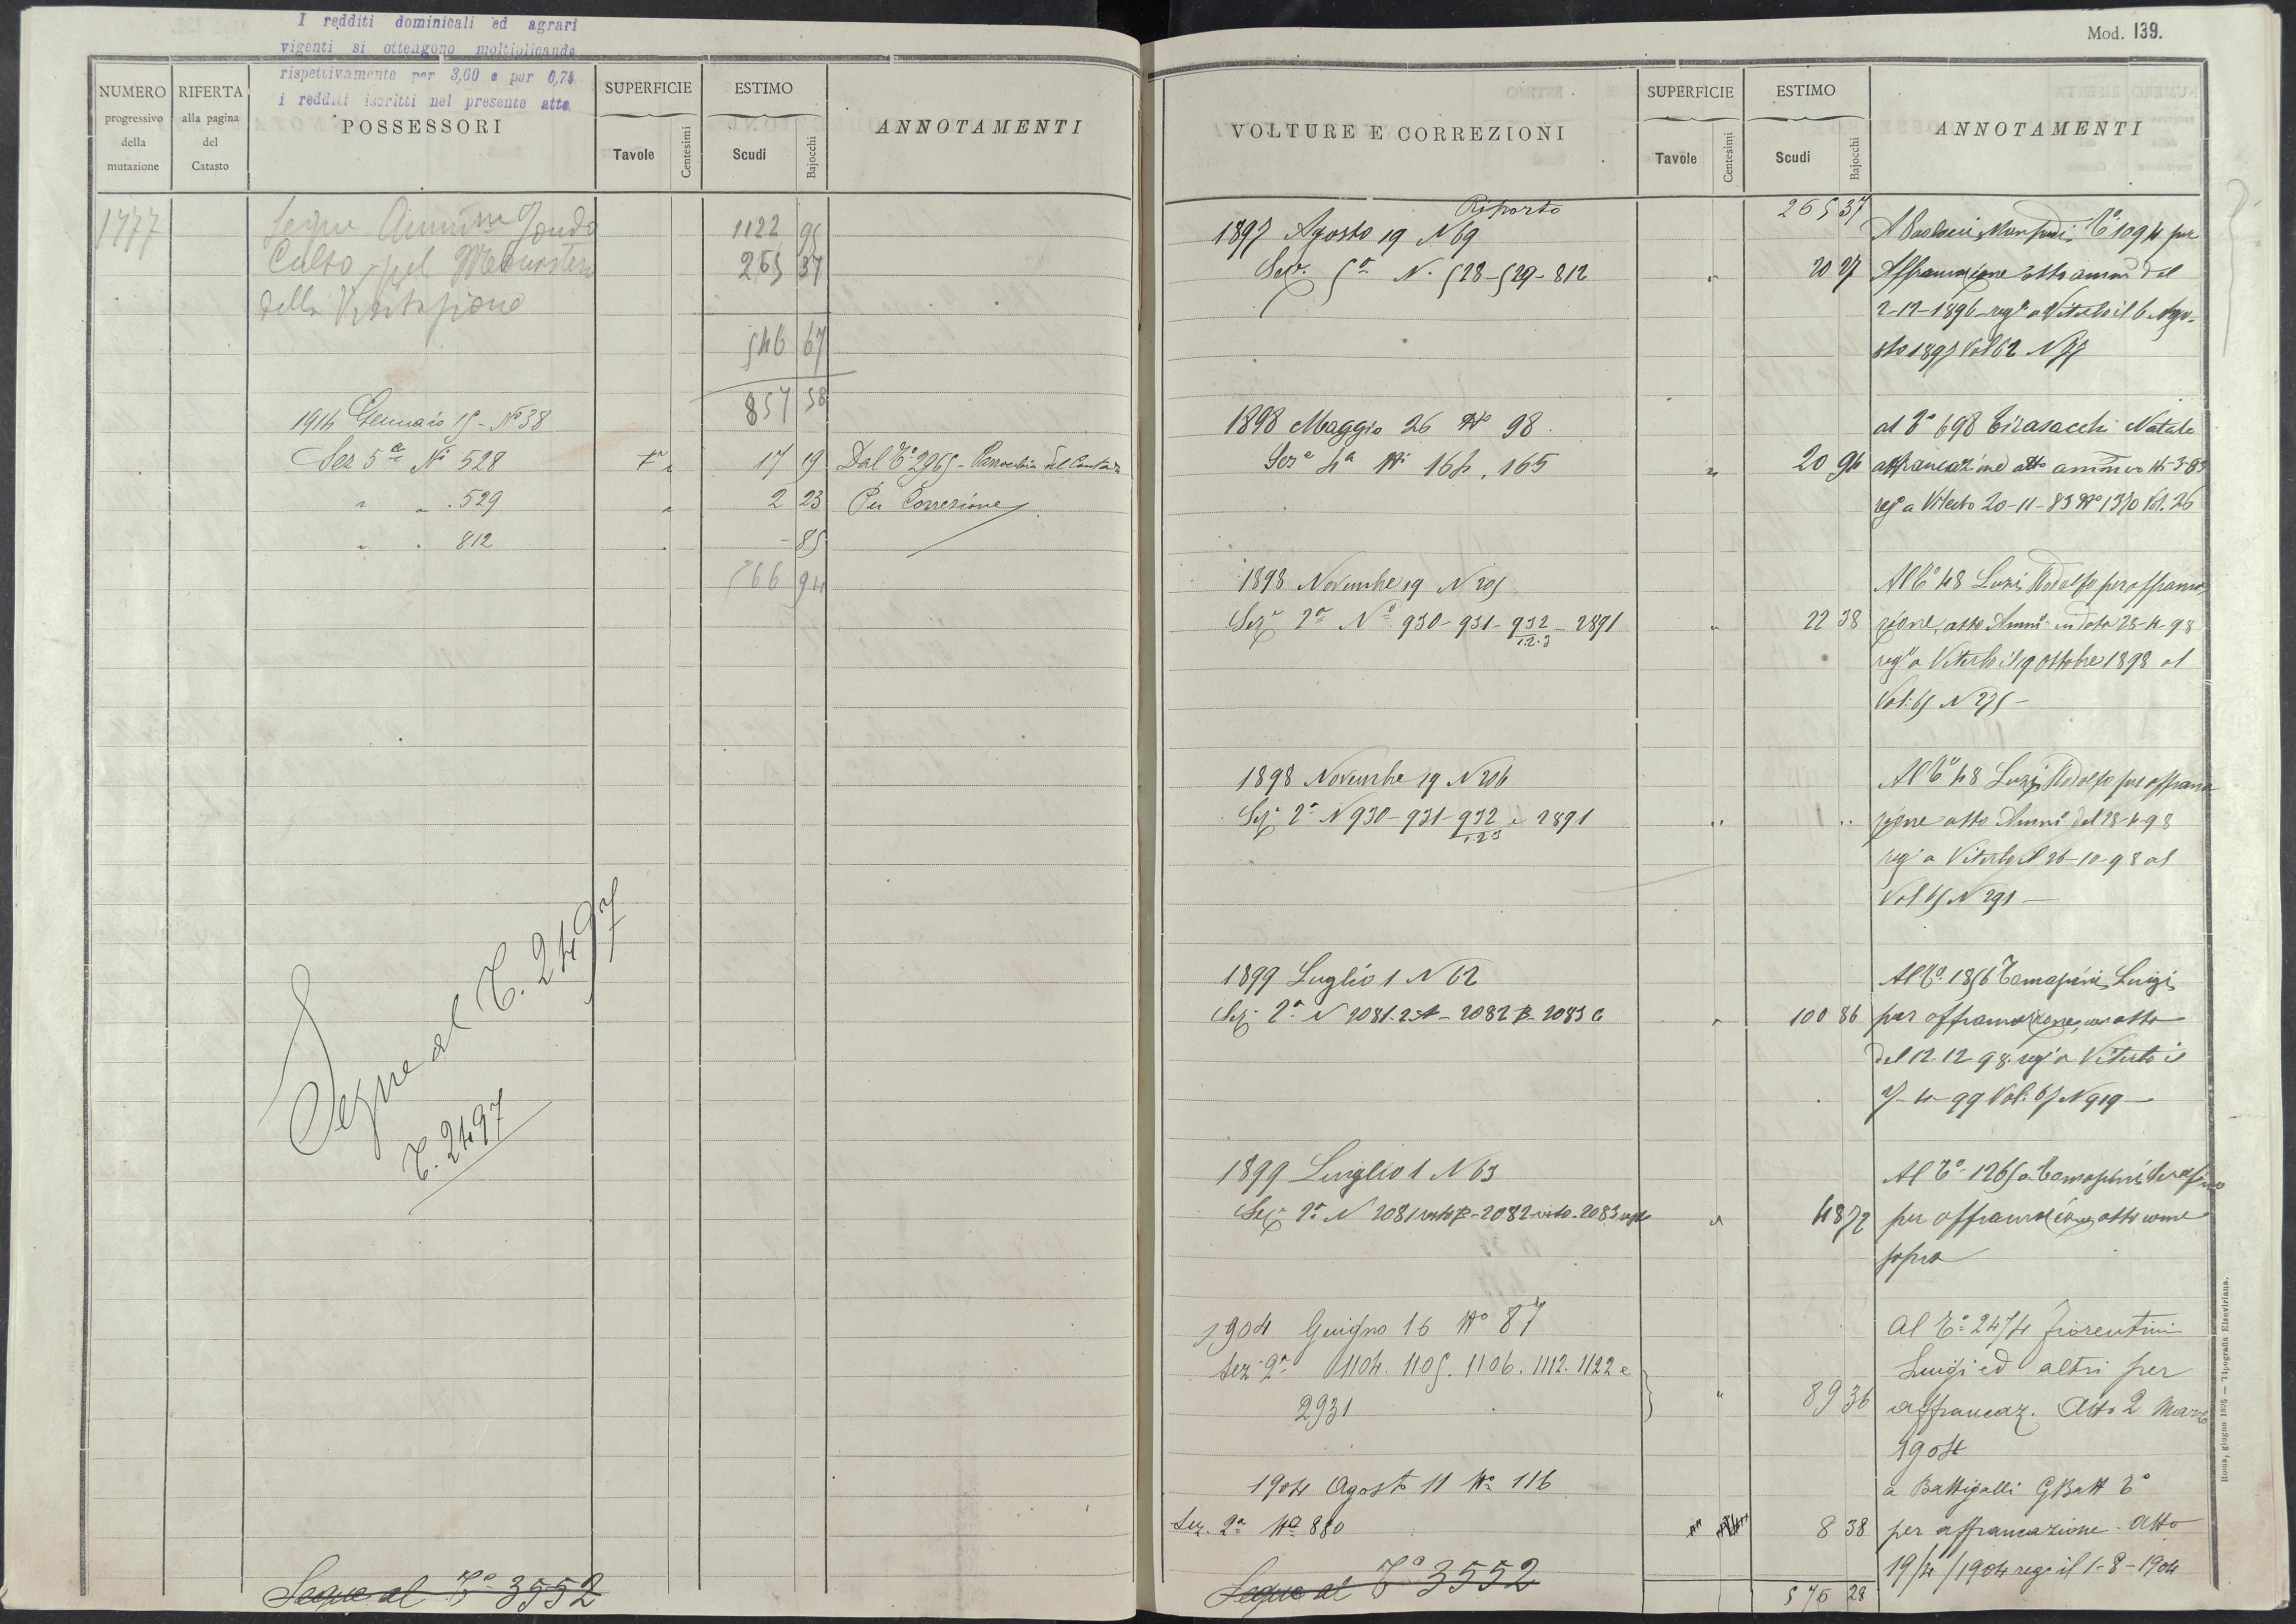 I redditi dominicali ed agrari
vigenti si ottengono moltiplicando
rispettivamente per 3,60 e per 0,74
i redditi iscritti nel presente atto
NUMERO
progressivo
della
mutazione
RIFERTA
alla pagina
del
Catasto
POSSESSORI
SUPERFICIE
Tavole
Centesimi
ESTIMO
Scudi
Bajocchi
ANNOTAMENTI
1777 Segue Fondo 1122 95
Culto pel 265 37
della Visitazione
546 67
857 58
1914 Gennaio 15 - N° 38
Sez 5a N° 528 17 19 Dal T° 2965 -
" " . 529 " 2 23 Per Correzione
" . 812 - 85
766 94
Segue al T. 2497
T. 2497
Segue al T° 3552
Mod. 139.
VOLTURE E CORREZIONI
SUPERFICIE
Tavole
Centesimi
ESTIMO
Scudi
Bajocchi
ANNOTAMENTI
Riporto 265 37
1897 Agosto 19 N 69 T° 1094 per
Sez. 5a N. 528-529-812 " 20 27 Affrancazione atto del
2-12-1896 reg° a Viterbo il 6 Ago-
sto 1897 Vol 62 N
1898 Maggio 26 N° 98. al T° 698 Tirasacchi Natale
Seza 4a Ni 164, 165 " 20 94 affrancazione atto
reg° a Viterbo 20-11-83 N° 1370 Vol. 26
1898 Novembre 19 N 205 Al T° 48 Luzi Rodolfo per affranca
Seze 2a Ni 930-931-932/1.2.3-2891 " 22 38 zione, atto in data 28-4-98
reg° a Viterbo il 19 Ottobre 1898 al
Vol: 65 N 275 -
1898 Novembre 19 N 206 Al T° 48 Luzi Rodolfo per affranca
Seze 2a N 930-931-932/1.2.3 e 2891 " " zione atto del 28-4-98
reg° a Viterbo il 26-10-98 al
Vol 65 N 291 —
1899 Luglio 1 N 62 Al T° 1856 Luigi
Sez. 2a N 2081 - 2082 - 2083 " 100 86 per affrancazione, atto
del 12.12-98 reg° a Viterbo il
-4-99 Vol: 65 N 919 —
1899 Luglio 1 N 63 Al T°
Seze 2a N 2081 - 2082 - 2083 " 48 72 per affrancazione, atto come
sopra
1904 Giugno 16 N° 87 al T° 2474 Fiorentini
Sez 2a 1104. 1105. 1106. 1112. 1122 e Luigi ed altri per
2931 " 89 36 affrancaz. Atto 2 Marzo
1904
1904 Agosto 11 N° 116 a Battigalli G Batt T°
Sez. 2a N° 880 8 38 per affrancazione. Atto
19/4/1904 reg° il 1-8-1904
Segue al T° 3552 576 28
Roma, giugno 1895 — Tipografia Elzeviriana.